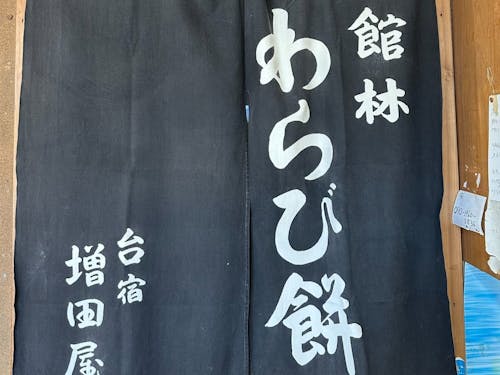 館林
わらび餅
台宿
増田屋